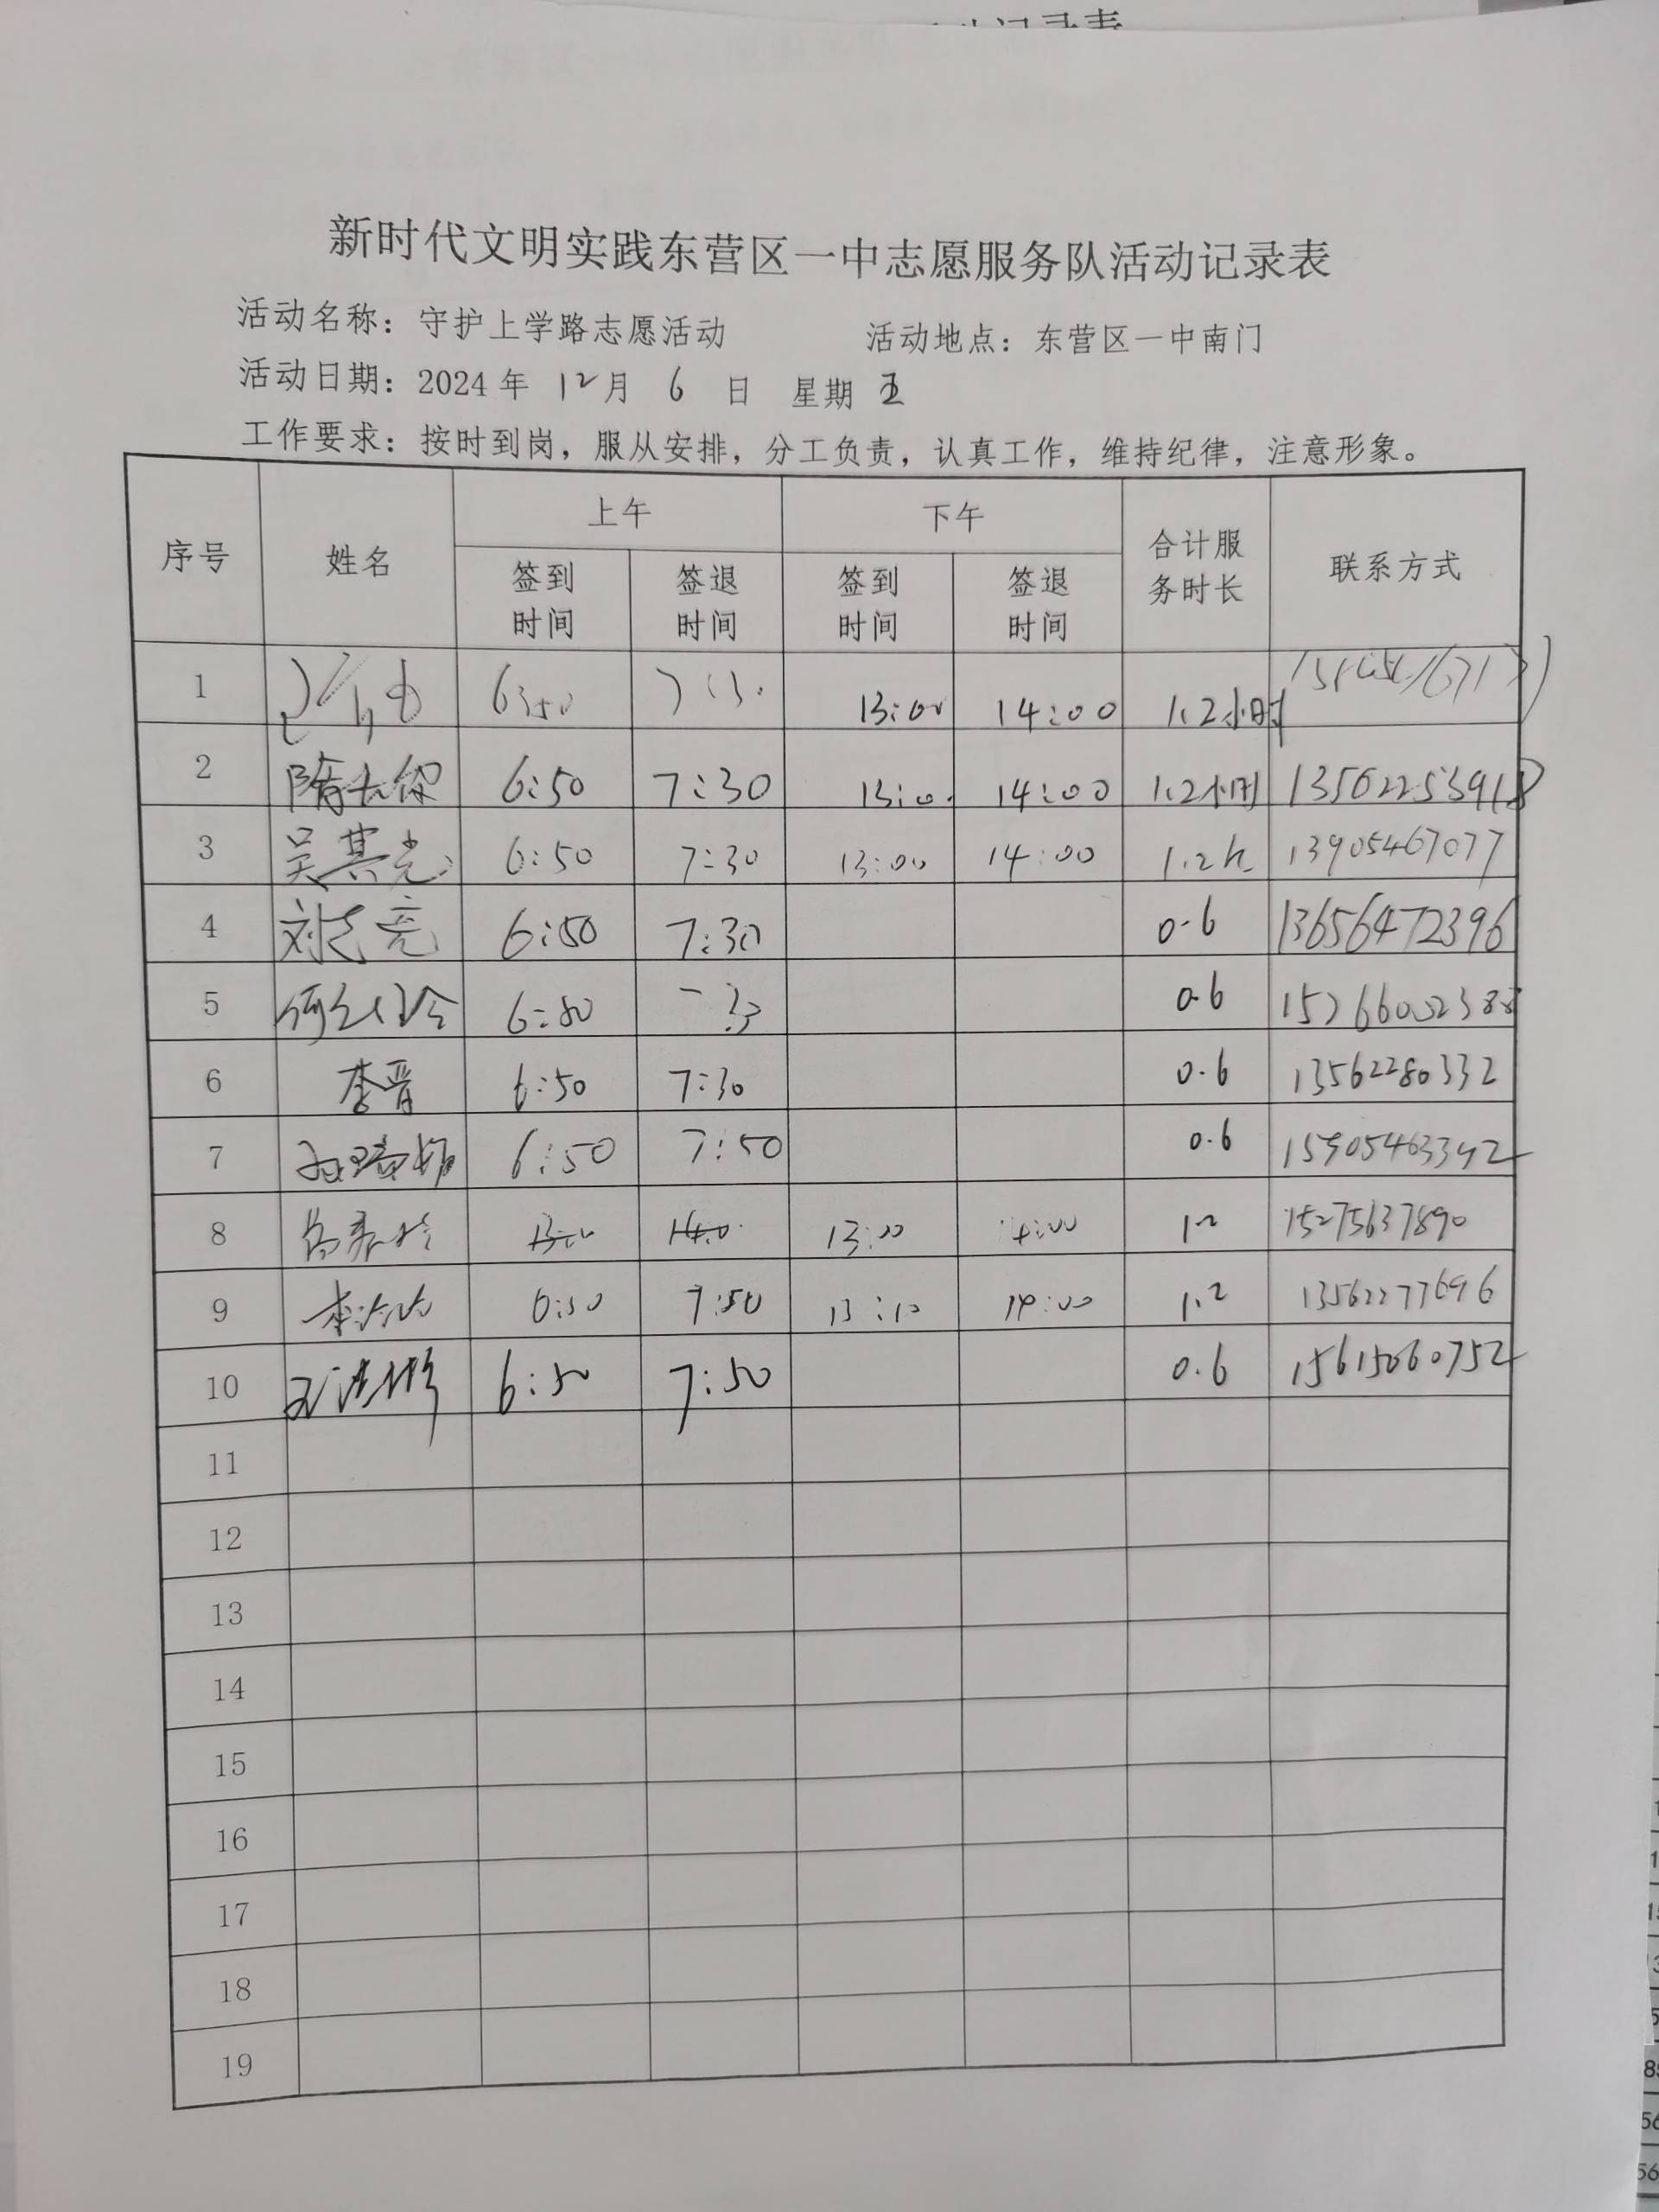 新时代文明实践东营区一中志愿服务队活动记录表
活动名称：守护上学路志愿活动 活动地点：东营区一中南门
活动日期：2024年 12月 6 日 星期 五
工作要求：按时到岗，服从安排，分工负责，认真工作，维持纪律，注意形象。
序号 姓名 上午 下午 合计服务时长 联系方式
签到时间 签退时间 签到时间 签退时间
1 6:50 13:00 14:00 1.2小时
2 6:50 7:30 13:00 14:00 1.2小时 13562253918
3 吴其光 6:50 7:30 13:00 14:00 1.2h 13905467077
4 刘志亮 6:50 7:30 0.6 13656472396
5 6:50 0.6
6 李晋 6:50 7:30 0.6 13562280332
7 6:50 7:50 0.6 15905463392
8 13:00 14:00 1.2 15275637890
9 6:50 7:50 13:10 14:00 1.2 13562277696
10 6:50 7:50 0.6 15615060752
11
12
13
14
15
16
17
18
19